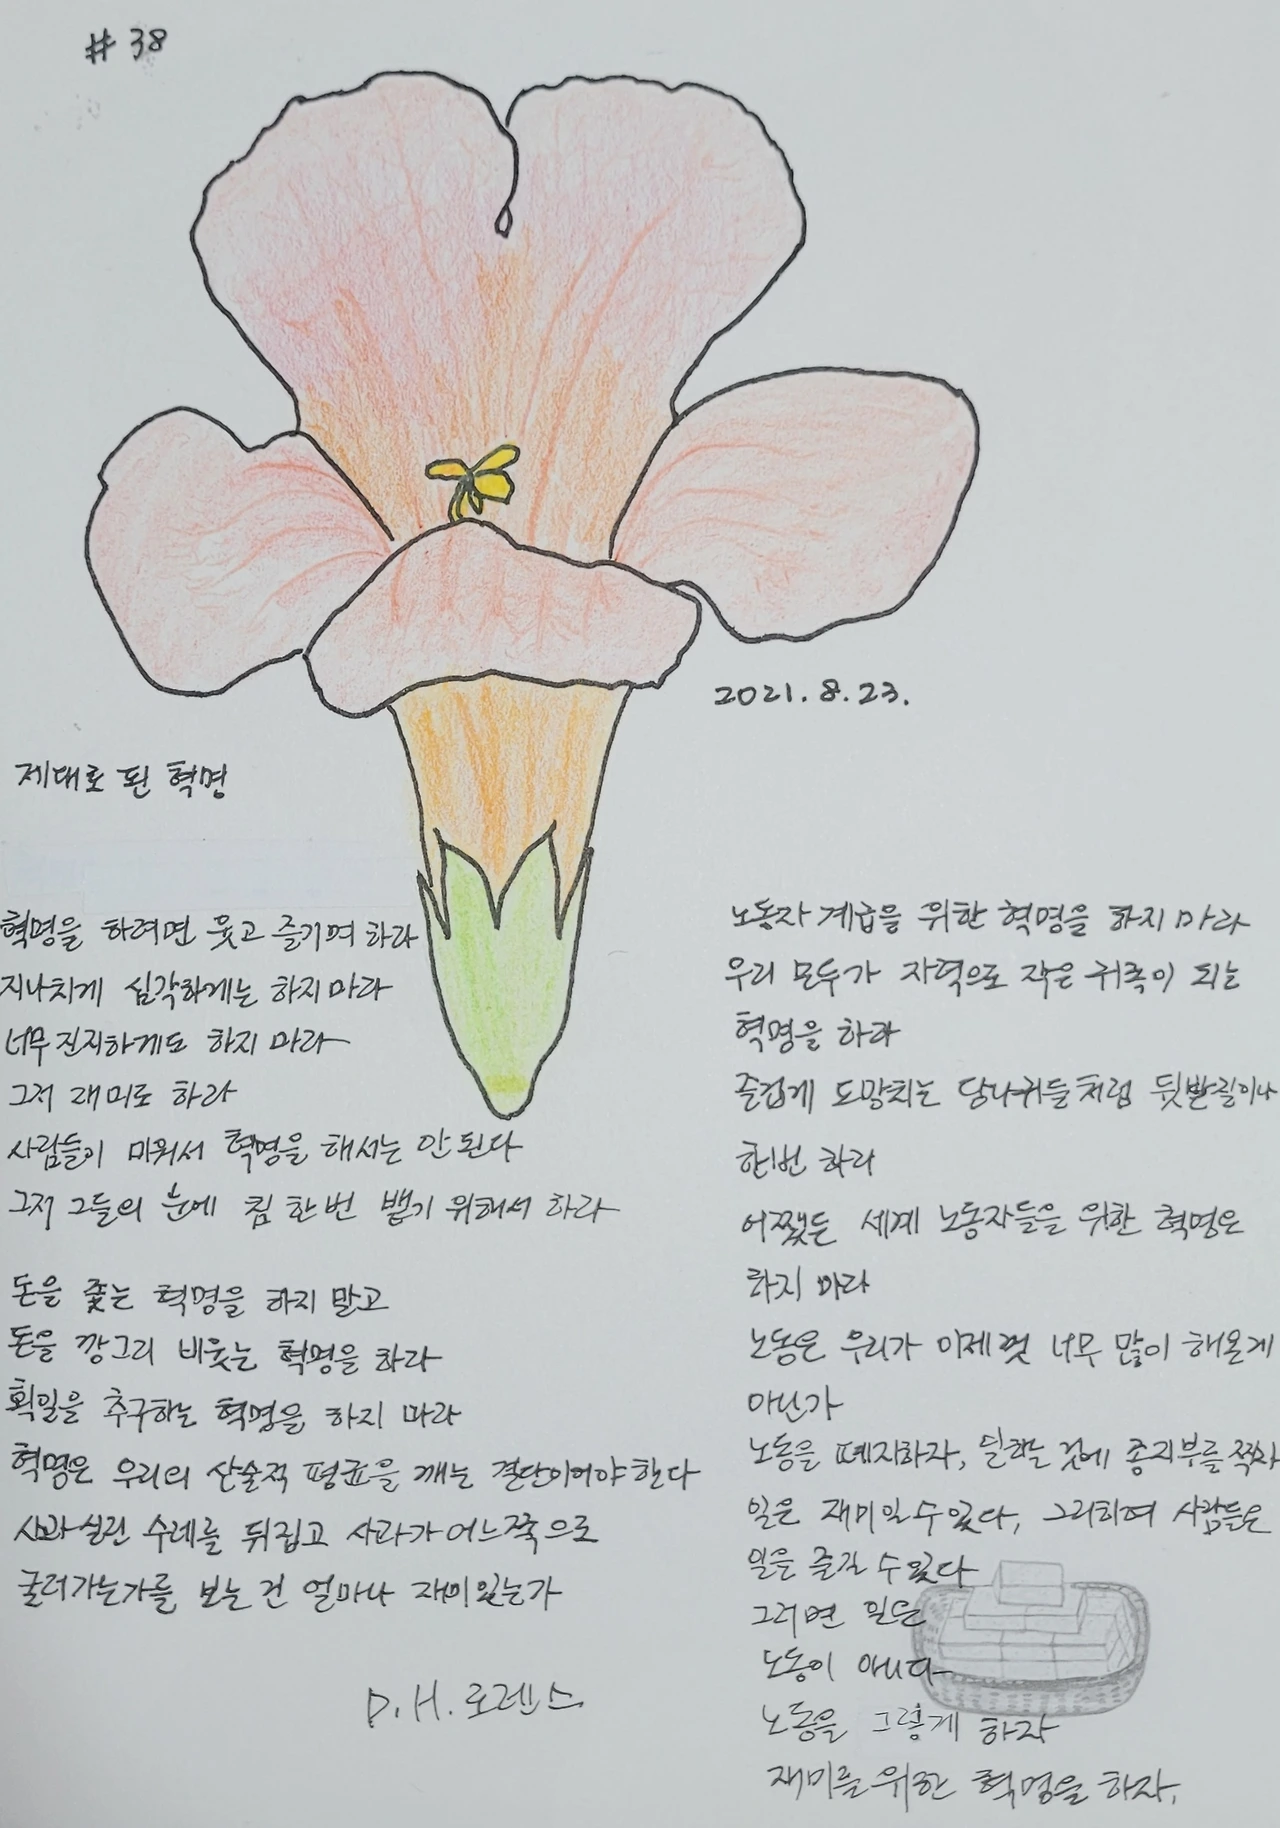 # 38
2021. 8. 23.
제대로 된 혁명
혁명을 하려면 웃고 즐기며 하라
지나치게 심각하게는 하지 마라
너무 진지하게도 하지 마라
그저 재미로 하라
사람들이 미워서 혁명을 해서는 안 된다
그저 그들의 눈에 침 한번 뱉기 위해서 하라
돈을 좇는 혁명을 하지 말고
돈을 깡그리 비웃는 혁명을 하라
획일을 추구하는 혁명을 하지 마라
혁명은 우리의 산술적 평균을 깨는 결단이어야 한다
사과 실린 수레를 뒤집고 사과가 어느 쪽으로
굴러가는가를 보는 건 얼마나 재미있는가
D.H.로렌스
노동자 계급을 위한 혁명을 하지 마라
우리 모두가 자력으로 작은 귀족이 되는
혁명을 하라
즐겁게 도망치는 당나귀들처럼 뒷발길이나
한번 하라
어쨌든 세계 노동자들을 위한 혁명은
하지 마라
노동은 우리가 이제껏 너무 많이 해온 게
아닌가
노동을 폐지하자, 일하는 것에 종지부를 찍자
일은 재미일 수 있다, 그리하여 사람들은
일을 즐길 수 있다
그러면 일은
노동이 아니다
노동을 그렇게 하자
재미를 위한 혁명을 하자.